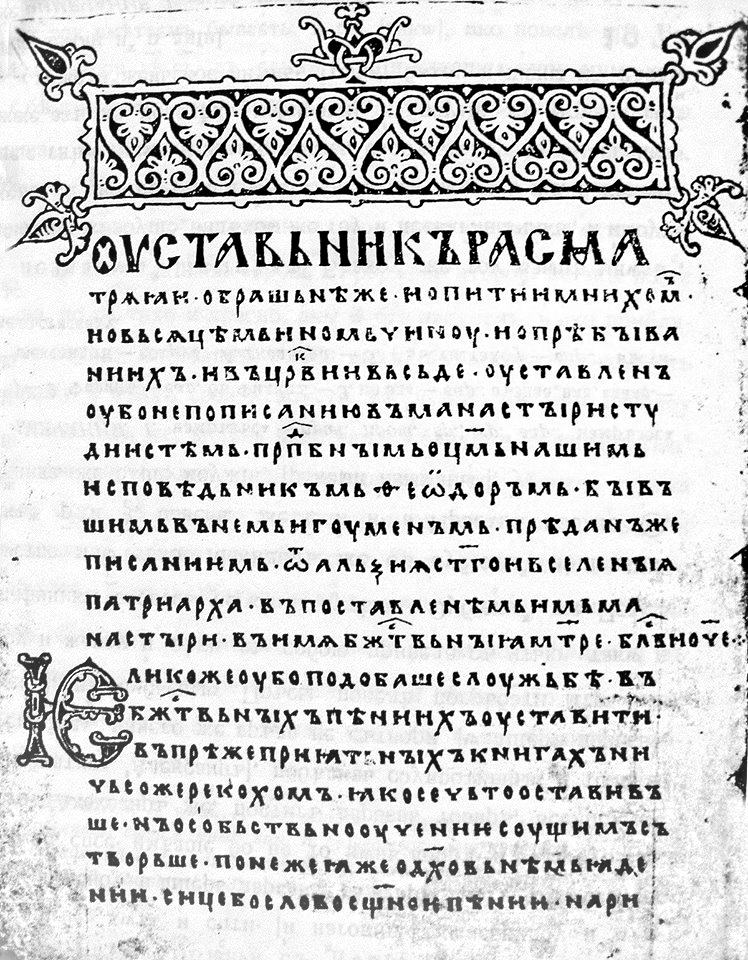 ОУСТАВЬНИКЪРАСМА
ТРѦꙖИ·ОБРАШЬНѢЖЕ·ИОПИТИИМНИХОМ҃Ъ·
НОВЬСꙖЦѢМЬИНОМЬУИНОУ·ИОПРѢБЪІВА
НИИХЪ·ИВЪЦР҃КВИИВЬСЬДЕ·ОУСТАВЛЕНЪ
ОУБОНЕПОПИСАНИЮВЪМАНАСТЪІРИСТУ
ДИИСТѢМЬ·ПРП҃БНЪІМЬОЦ҃МЬНАШИМЬ
ИСПОВѢДЬНИКЪМЬ·ѲЕѠДОРЪМЬ·БЪІВЪ
ШИМЬВЪНЕМЬИГОУМЕНЪМЬ·ПРѢДАНЪЖЕ
ПИСАНИИМЬ·ѾАЛЬѮИꙖСТ҃ГОИВСЕЛЕНЪІꙖ
ПАТРИАРХА·ВЪПОСТАВЛЕНѢМЬИМЬМА
НАСТЪІРИ·ВЪИМꙖБЖ҃ТВЬНЪІꙖМТ҃РЕ·БЛ҃ВНОУ҃Е·
ѤЛИКОЖЕОУБОПОДОБАШЕСЛОУЖЬБѢ·ВЪ
БЖ҃ТВЬНЪІХЪПѢНИИХЪОУСТАВИТИ·
ВЪПРѢЖЕПРИꙖТЬНЪІХЪКНИГАХЪНИ
УЬСОЖЕРЕКОХОМЪ·ꙖКОСЕУЬТООСТАВИВЪ
ШЕ·НЪОСОБЬСТВЬНООУУЕНИѤСОУЩИМЪСЪ
ТВОРЬШЕ·ПОНЕЖЕꙖЖЕОДХ҃ОВЬНѢМЬꙖДЕ
НИИ·СИЦЕБОСЛОВОСЩ҃НОИПѢНИИ·НАРИ